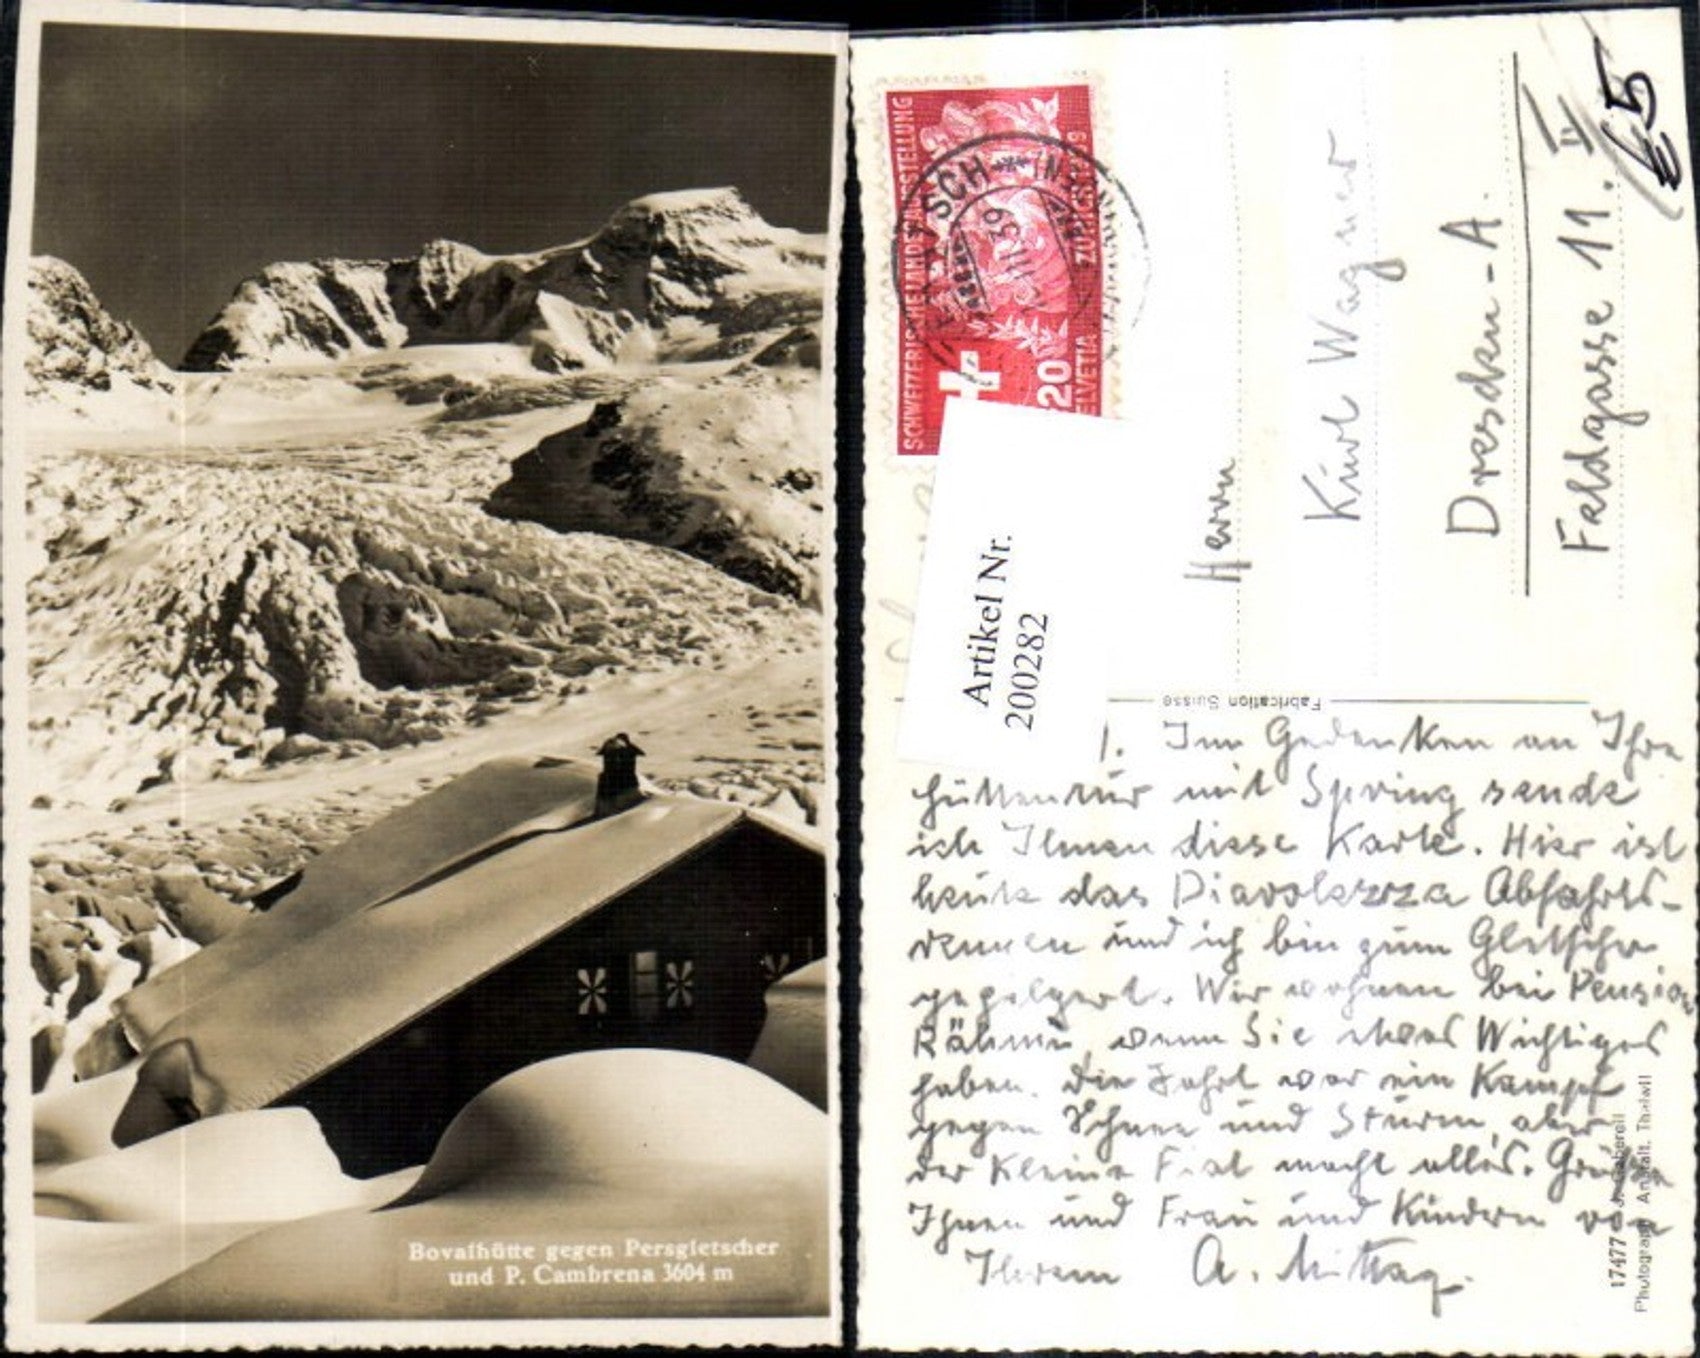 Bovalhütte gegen Persgletscher
und P. Cambrena 3604 m
SCHWEIZERISCHE LANDESAUSSTELLUNG
ZÜRICH 1939
20
HELVETIA
Artikel Nr.
200282
€5
Herrn
Kurt Wagner
Dresden-A.
Feldgasse 11. II
Fabrication Suisse
Im Gedenken an Ihre
Hüttentür mit Spring sende
ich Ihnen diese Karte. Hier ist
heute das Diavolezza Abfahrts-
rennen und ich bin zum Gletscher
gepilgert. Wir wohnen bei Pension
wenn Sie etwas Wichtiges
haben. Die Fahrt war ein Kampf
gegen Schnee und Sturm, aber
der kleine Fiat macht alles. Grüße
Ihnen und Frau und Kindern von
Ihrem A. Mittag.
17477
Photograph. Anstalt. Thalwil